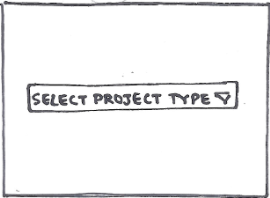 SELECT PROJECT TYPE